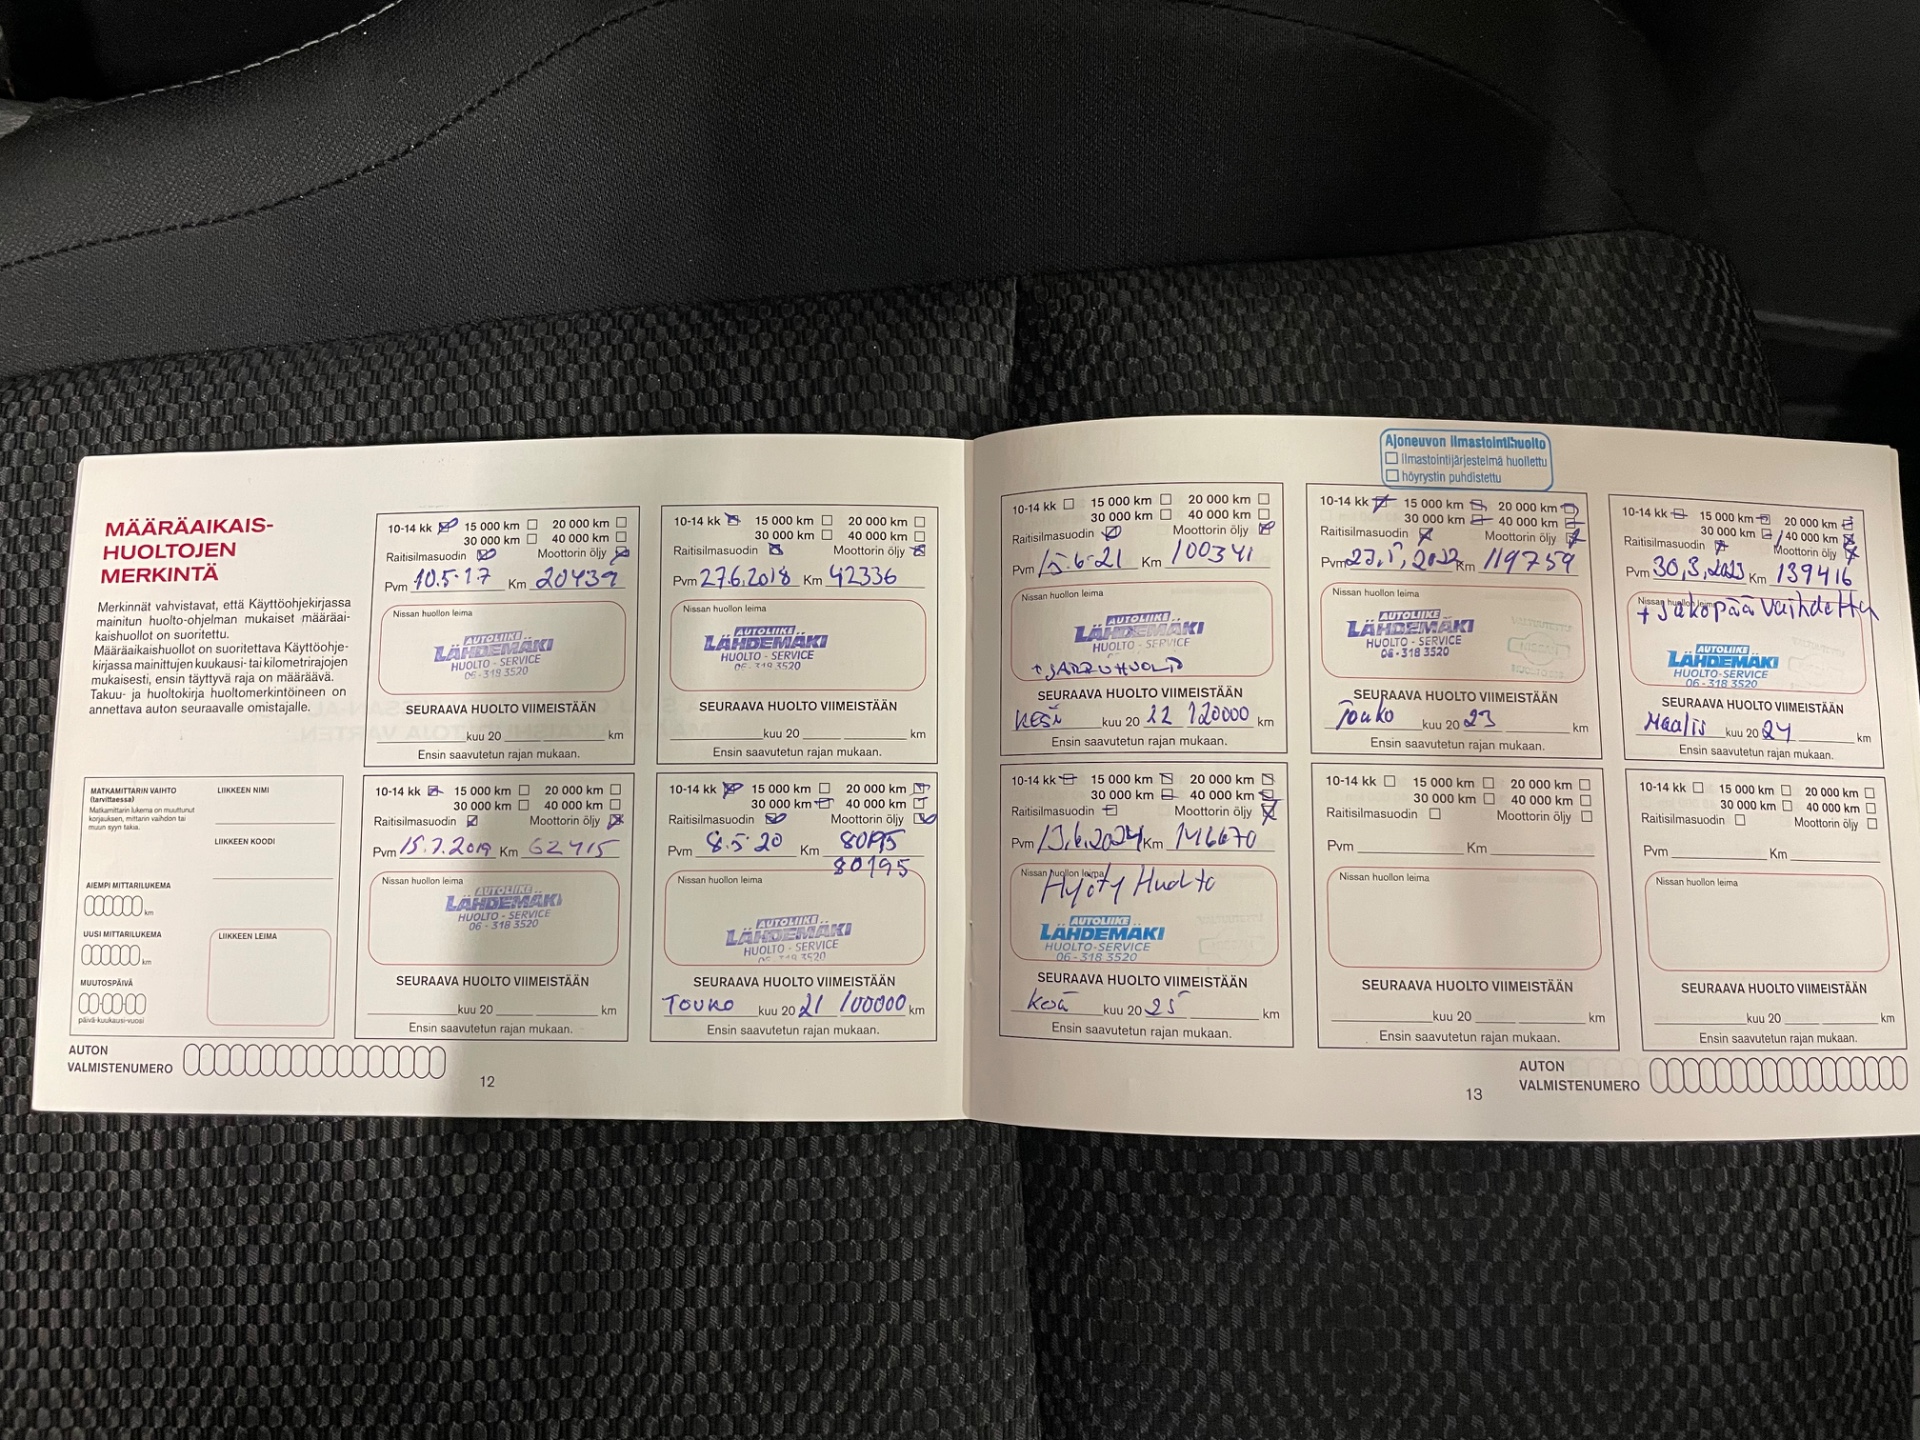 MÄÄRÄAIKAIS-
HUOLTOJEN
MERKINTÄ
Merkinnät vahvistavat, että Käyttöohjekirjassa
mainitun huolto-ohjelman mukaiset määräai-
kaishuollot on suoritettu.
Määräaikaishuollot on suoritettava Käyttöohje-
kirjassa mainittujen kuukausi- tai kilometrirajojen
mukaisesti, ensin täyttyvä raja on määräävä.
Takuu- ja huoltokirja huoltomerkintöineen on
annettava auton seuraavalle omistajalle.
MATKAMITTARIN VAIHTO
(tarvittaessa)
Matkamittarin lukema on muuttunut
korjauksen, mittarin vaihdon tai
muun syyn takia.
AIEMPI MITTARILUKEMA
km
UUSI MITTARILUKEMA
km
MUUTOSPÄIVÄ
päivä-kuukausi-vuosi
LIIKKEEN NIMI
LIIKKEEN KOODI
LIIKKEEN LEIMA
AUTON
VALMISTENUMERO
10-14 kk 15 000 km 20 000 km
30 000 km 40 000 km
Raitisilmasuodin Moottorin öljy
Pvm 10.5.17 Km 20439
Nissan huollon leima
AUTOLIIKE
LÄHDEMÄKI
HUOLTO - SERVICE
06 - 318 3520
SEURAAVA HUOLTO VIIMEISTÄÄN
kuu 20 km
Ensin saavutetun rajan mukaan.
10-14 kk 15 000 km 20 000 km
30 000 km 40 000 km
Raitisilmasuodin Moottorin öljy
Pvm 27.6.2018 Km 42336
Nissan huollon leima
AUTOLIIKE
LÄHDEMÄKI
HUOLTO - SERVICE
06 - 318 3520
SEURAAVA HUOLTO VIIMEISTÄÄN
kuu 20 km
Ensin saavutetun rajan mukaan.
10-14 kk 15 000 km 20 000 km
30 000 km 40 000 km
Raitisilmasuodin Moottorin öljy
Pvm 15.7.2019 Km 62415
Nissan huollon leima
AUTOLIIKE
LÄHDEMÄKI
HUOLTO - SERVICE
06 - 318 3520
SEURAAVA HUOLTO VIIMEISTÄÄN
kuu 20 km
Ensin saavutetun rajan mukaan.
10-14 kk 15 000 km 20 000 km
30 000 km 40 000 km
Raitisilmasuodin Moottorin öljy
Pvm 8.5.20 Km
80195
Nissan huollon leima
AUTOLIIKE
LÄHDEMÄKI
HUOLTO - SERVICE
06 - 318 3520
SEURAAVA HUOLTO VIIMEISTÄÄN
TOUKO kuu 20 21 100000 km
Ensin saavutetun rajan mukaan.
12
Ajoneuvon ilmastointihuolto
Ilmastointijärjestelmä huollettu
höyrystin puhdistettu
10-14 kk 15 000 km 20 000 km
30 000 km 40 000 km
Raitisilmasuodin Moottorin öljy
Pvm 15.6-21 Km 100341
Nissan huollon leima
AUTOLIIKE
LÄHDEMÄKI
HUOLTO - SERVICE
+ JARRUHUOLTO
SEURAAVA HUOLTO VIIMEISTÄÄN
KESÄ kuu 20 22 120000 km
Ensin saavutetun rajan mukaan.
10-14 kk 15 000 km 20 000 km
30 000 km 40 000 km
Raitisilmasuodin Moottorin öljy
Pvm 23,5,2022 Km 119759
Nissan huollon leima
AUTOLIIKE
LÄHDEMÄKI
HUOLTO - SERVICE
06 - 318 3520
SEURAAVA HUOLTO VIIMEISTÄÄN
Touko kuu 20 23 km
Ensin saavutetun rajan mukaan.
10-14 kk 15 000 km 20 000 km
30 000 km 40 000 km
Raitisilmasuodin Moottorin öljy
Pvm 30,3,2023 Km 139416
Nissan huollon leima
+ Jakopää vaihdettu
AUTOLIIKE
LÄHDEMÄKI
HUOLTO-SERVICE
06 - 318 3520
SEURAAVA HUOLTO VIIMEISTÄÄN
Maalis kuu 20 24 km
Ensin saavutetun rajan mukaan.
10-14 kk 15 000 km 20 000 km
30 000 km 40 000 km
Raitisilmasuodin Moottorin öljy
Pvm 13.6.2024 Km 146670
Nissan huollon leima
Hyöty Huolto
AUTOLIIKE
LÄHDEMÄKI
HUOLTO-SERVICE
06 - 318 3520
SEURAAVA HUOLTO VIIMEISTÄÄN
Kesä kuu 20 25 km
Ensin saavutetun rajan mukaan.
10-14 kk 15 000 km 20 000 km
30 000 km 40 000 km
Raitisilmasuodin Moottorin öljy
Pvm Km
Nissan huollon leima
SEURAAVA HUOLTO VIIMEISTÄÄN
kuu 20 km
Ensin saavutetun rajan mukaan.
10-14 kk 15 000 km 20 000 km
30 000 km 40 000 km
Raitisilmasuodin Moottorin öljy
Pvm Km
Nissan huollon leima
SEURAAVA HUOLTO VIIMEISTÄÄN
kuu 20 km
Ensin saavutetun rajan mukaan.
AUTON
VALMISTENUMERO
13